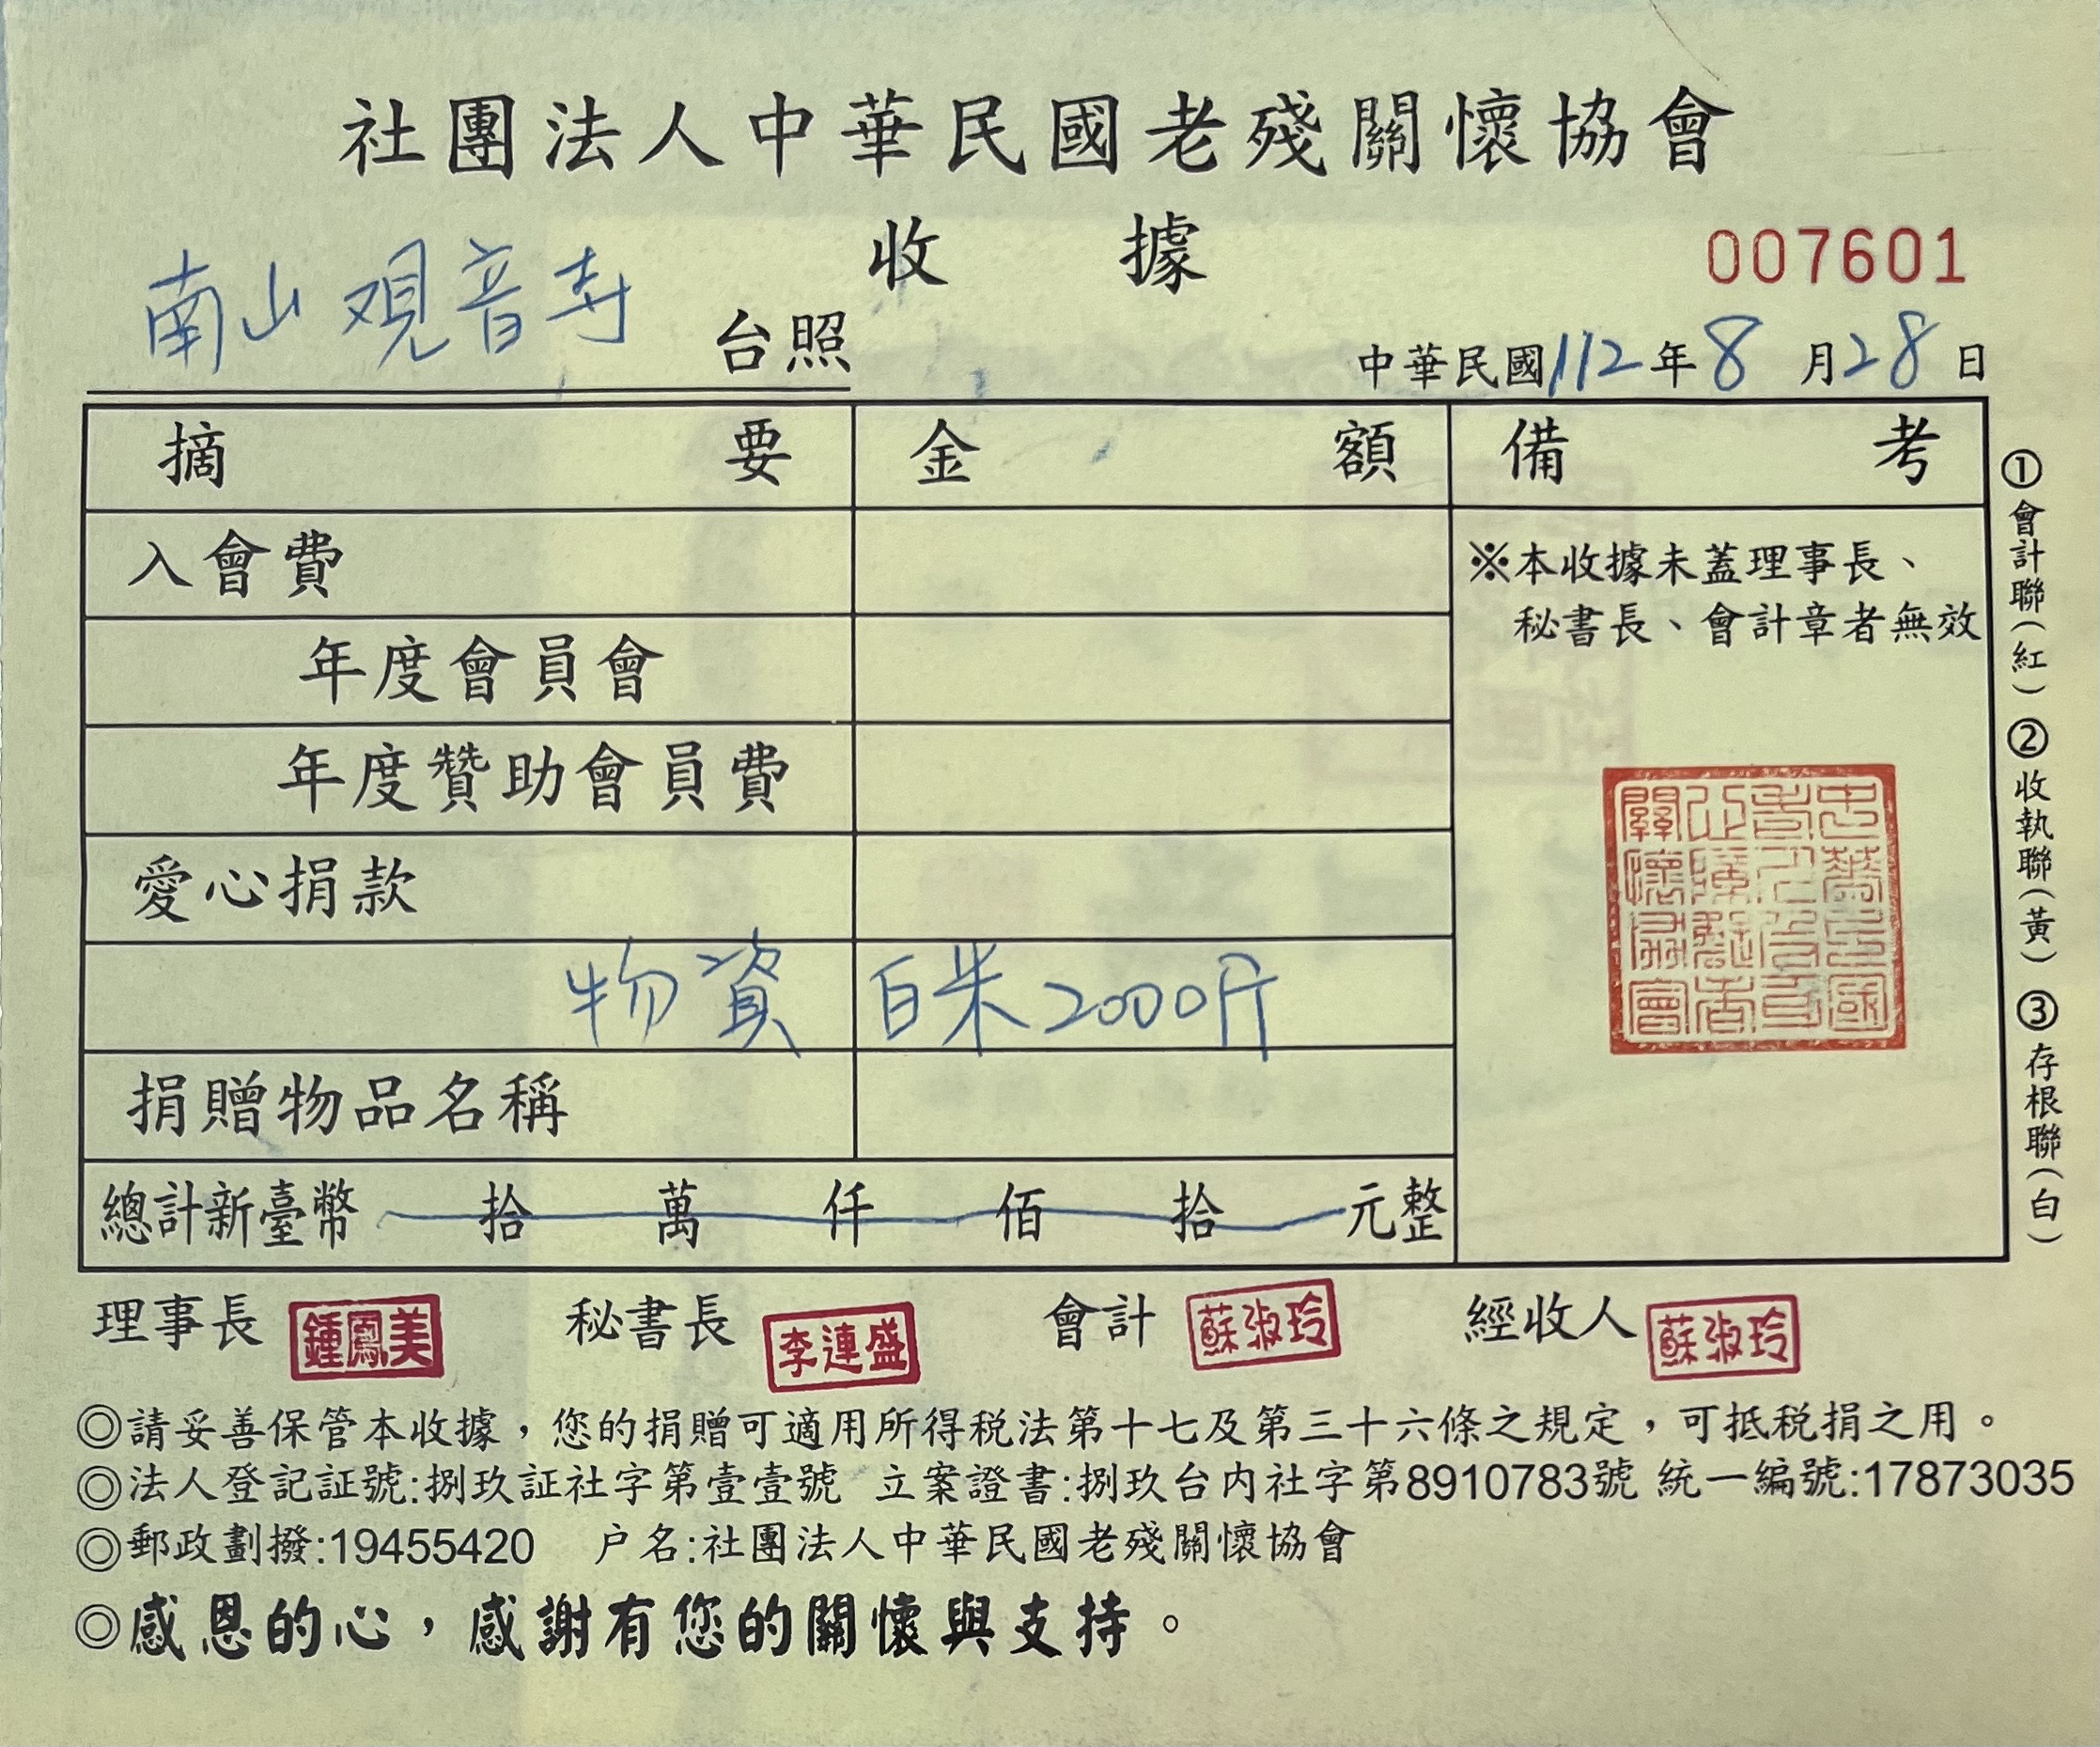 社團法人中華民國老殘關懷協會
收據
007601
南山观音寺 台照
中華民國112年8月28日
摘要 金額 備考
入會費
年度會員會
年度贊助會員費
愛心捐款
物資 白米2000斤
捐贈物品名稱
總計新臺幣 拾 萬 仟 佰 拾 元整
※本收據未蓋理事長、
秘書長、會計章者無效
①會計聯(紅)②收執聯(黃)③存根聯(白)
理事長 鍾鳳美 秘書長 李連盛 會計 蘇淑玲 經收人 蘇淑玲
◎請妥善保管本收據，您的捐贈可適用所得税法第十七及第三十六條之規定，可抵税捐之用。
◎法人登記証號:捌玖証社字第壹壹號 立案證書:捌玖台内社字第8910783號 統一編號:17873035
◎郵政劃撥:19455420 户名:社團法人中華民國老殘關懷協會
◎感恩的心，感謝有您的關懷與支持。